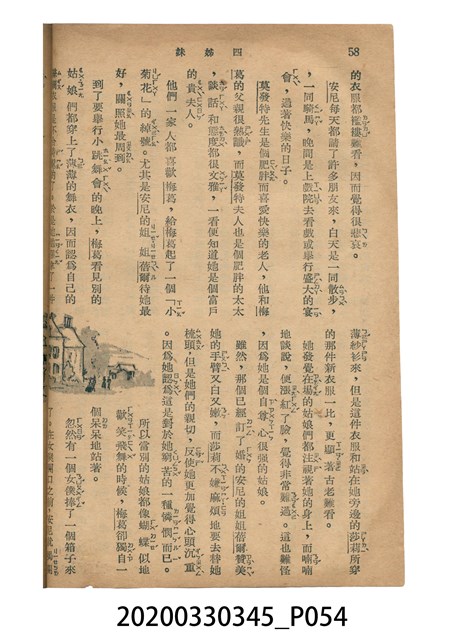 58
四姊妹
的衣服都襤褸難看，因而覺得很悲哀。
安尼每天都請了許多朋友來，白天是一同散步，
一同騎馬，晚間是上戲院去看戲或舉行盛大的宴
會，過著快樂的日子。
莫發特先生是個肥胖而喜愛快樂的老人，他和梅
葛的父親很熟識，而莫發特夫人也是個肥胖的太太
，談話和態度都很文雅，一看便知道她是個富戶
的貴夫人。
他們一家人都喜歡梅葛，給梅葛起了一個「小
菊花」的綽號。尤其是安尼的姐姐蓓爾待她最
好，關照她最周到。
到了要舉行小跳舞會的晚上，梅葛看見別的
姑娘們都穿上了薄薄的舞衣，因而認為自己的
薄紗衫來，但是這件衣服和站在她旁邊的莎莉所穿
的那件新衣服一比，更顯著古老難看。
她發覺在場的姑娘們都注視著她的身上，而喃喃
地談說，便漲紅了臉，覺得非常難過。這也難怪
，因為她是個自尊心很強的姑娘。
雖然，那個已經訂了婚的安尼的姐姐蓓爾贊美
她的手臂又白又嫩，而莎莉不嫌麻煩地要去替她
梳頭，但是她們的親切，反使她更加覺得心頭沉重
。因為她認為這是對於她窮苦的一種憐憫而已。
所以當別的姑娘都像蝴蝶似地
歡笑飛舞的時候，梅葛卻獨自一
個呆呆地站著。
忽然有一個女僕捧了一個箱子來
20200330345_P054